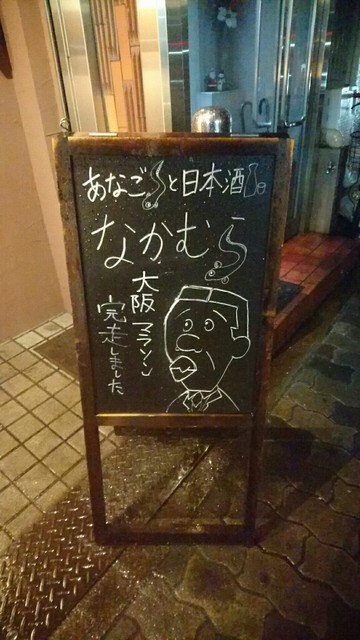 あなごと日本酒
なかむら
大阪マラソン
完走しました